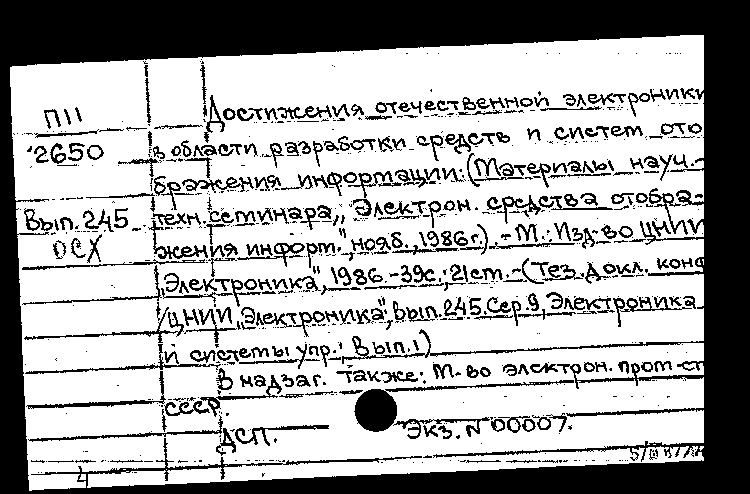 П11
2650
Вып. 245
ОСХ
Достижения отечественной электроники
в области разработки средств и систем ото
бражения информации: (Материалы науч.-
техн. семинара „Электрон. средства отобра-
жения информ.", нояб., 1986г.). - М.: Изд-во ЦНИИ
„Электроника", 1986.-39с.; 21см.-(Тез. докл. конф
/ЦНИИ „Электроника"; Вып. 245. Сер. 9, Электроника
и системы упр.; Вып.1)
В надзаг. также: М-во электрон. пром-ст
СССР.
ДСП.
Экз. N 00007.
4